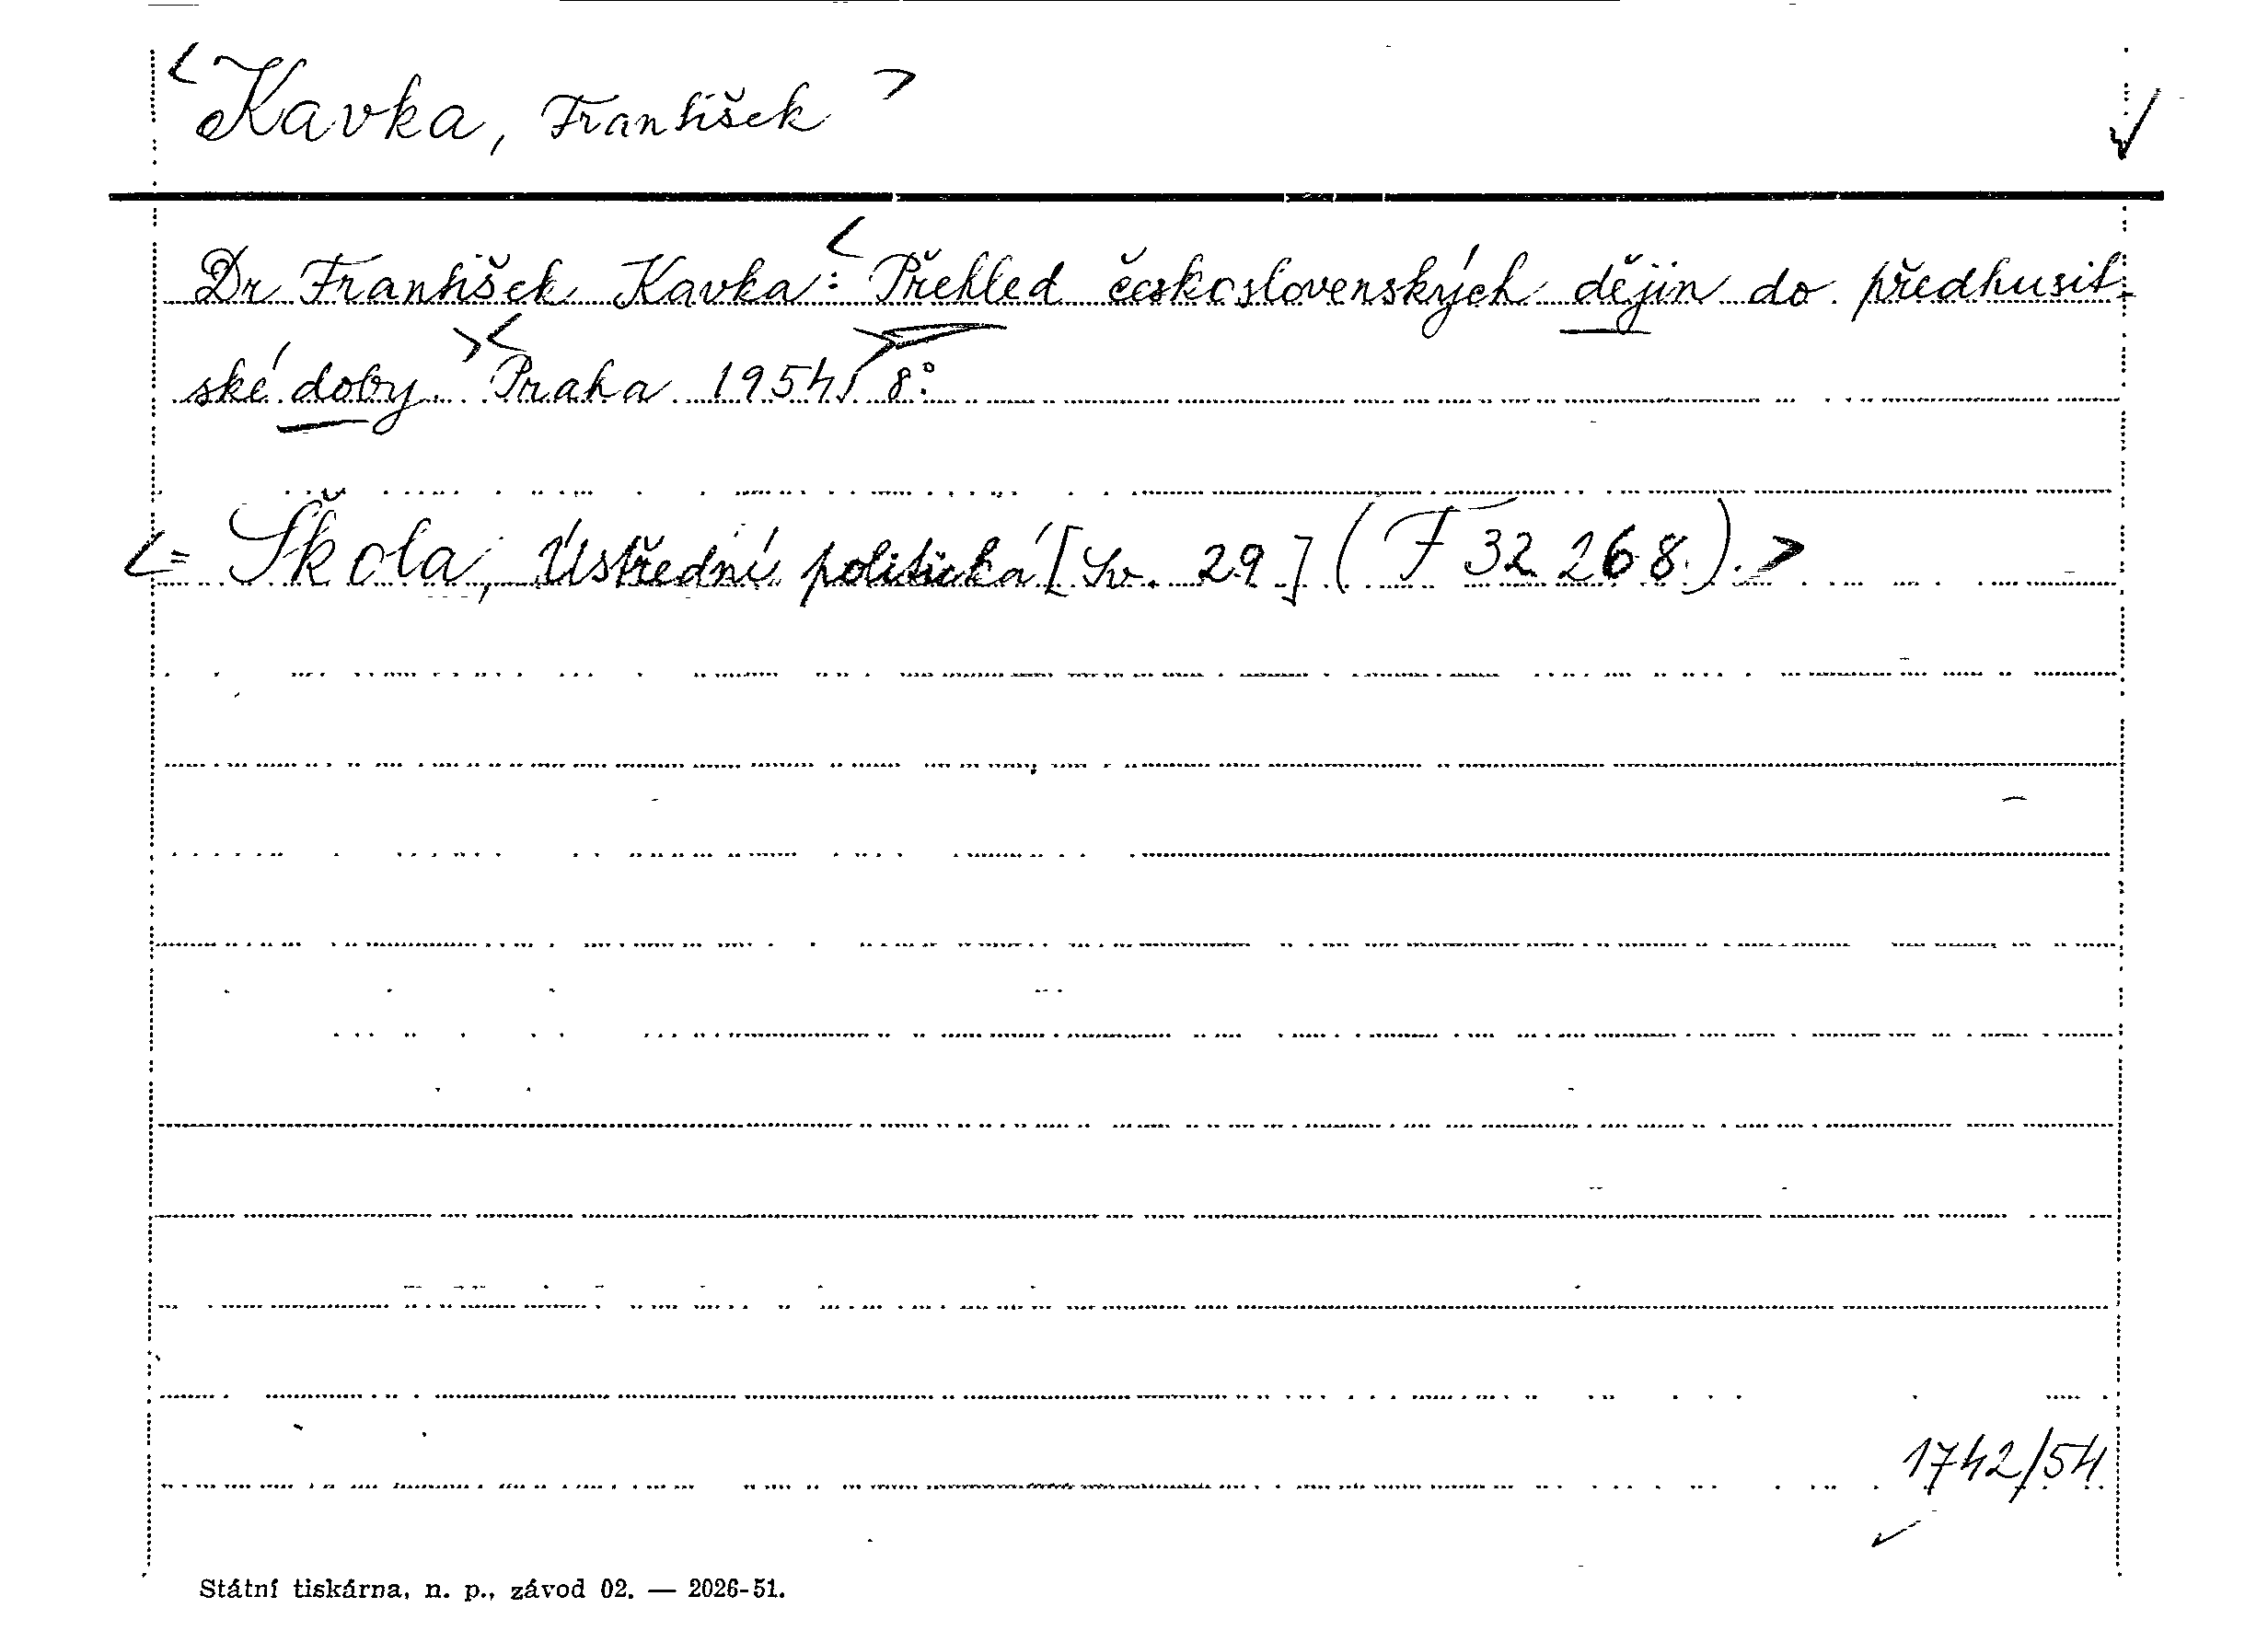 <Kavka, František>
Dr František Kavka: <Přehled československých dějin do předhusit-
ské doby. ><Praha 1954, 8°.
<= Škola, Ústřední politická [Sv. 29] (F 32 268).>
1742/54
Státní tiskárna, n. p., závod 02. — 2026-51.